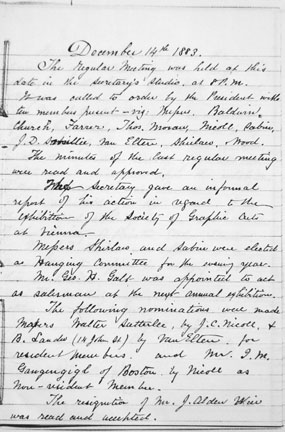 December 14th 1883.
The Regular Meeting was held at this
date in the Secretary's studio, at 8 P.M.
It was called to order by the President with
ten members present - viz; Messrs. Baldwin,
Church, Farrer, Thos. Moran, Nicoll, Sabin,
J. D. Smillie, Van Elten, Shirlaw, Wood.
The minutes of the last regular meeting
were read and approved.
The Secretary gave an informal
report of his action in regard to the
exhibition of the Society of Graphic Arts
at Vienna.
Messers Shirlaw, and Sabin were elected
as Hanging Committee for the ensuing year.
Mr. Geo. H. Galt was appointed to act
as salesman at the next annual exhibition.
The following nominations were made
Messrs Walter Satterlee, by J. C. Nicoll, &
B. Lander (18 John St.) by Van Elten, for
resident members. and Mr. I. M.
Gaugengigl of Boston, by Nicoll as
Non-resident Member.
The resignation of Mr. J. Alden Weir
was read and accepted.